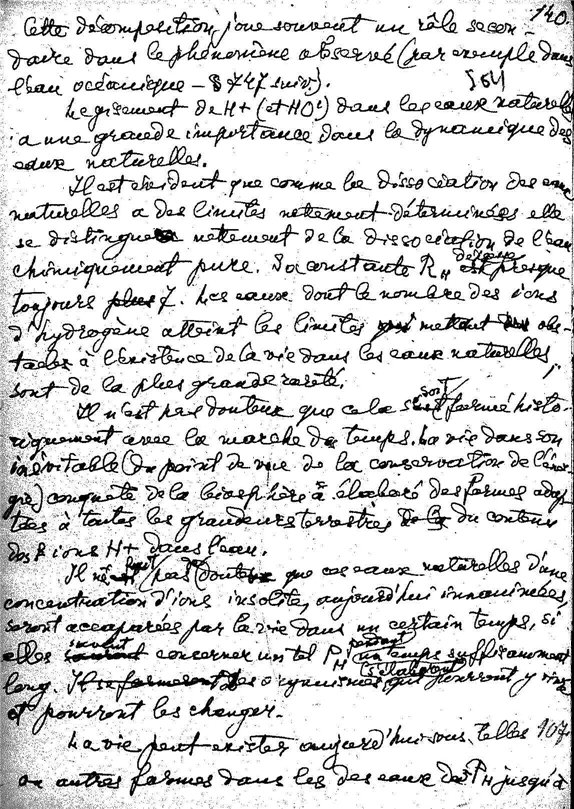 140.
Cette décomposition joue souvent un rôle secon-
daire dans le phénomène observé (par exemple dans
l'eau océanique – § 747 suiv.).
Le gisement de H+ (et HO') dans les eaux naturelles
a une grande importance dans la dynamique des
eaux naturelles.
Il est évident que comme la dissociation des eaux
naturelles a des limites nettement déterminées elle
se distingue nettement de la dissociation de l'eau
chimiquement pure. Sa constante PH presque
toujours 7. Les eaux dont le nombre des ions
d'hydrogène atteint les limites mettant obs-
tacles à l'existence de la vie dans les eaux naturelles,
sont de la plus grande rareté.
Il n'est pas douteux que cela s'est formé histo-
riquement avec la marche du temps. La vie dans son
inévitable (du point de vue de la conservation de l'éner-
gie) conquête de la biosphère a élaboré des formes adap-
tées à toutes les grandeurs terrestres du contenu
des ions H+ dans l'eau.
Il pas que ces eaux naturelles d'une
concentration d'ions insolite, aujourd'hui inanimées,
seront accaparées par la vie dans un certain temps, si
elles concerner un tel PH pendant un temps suffisamment
long. s'élaborent des organismes qui pourront y vivre
et pourront les changer.
La vie peut exister aujourd'hui sous telles 107
ou autres formes dans les des eaux de PH jusqu'à